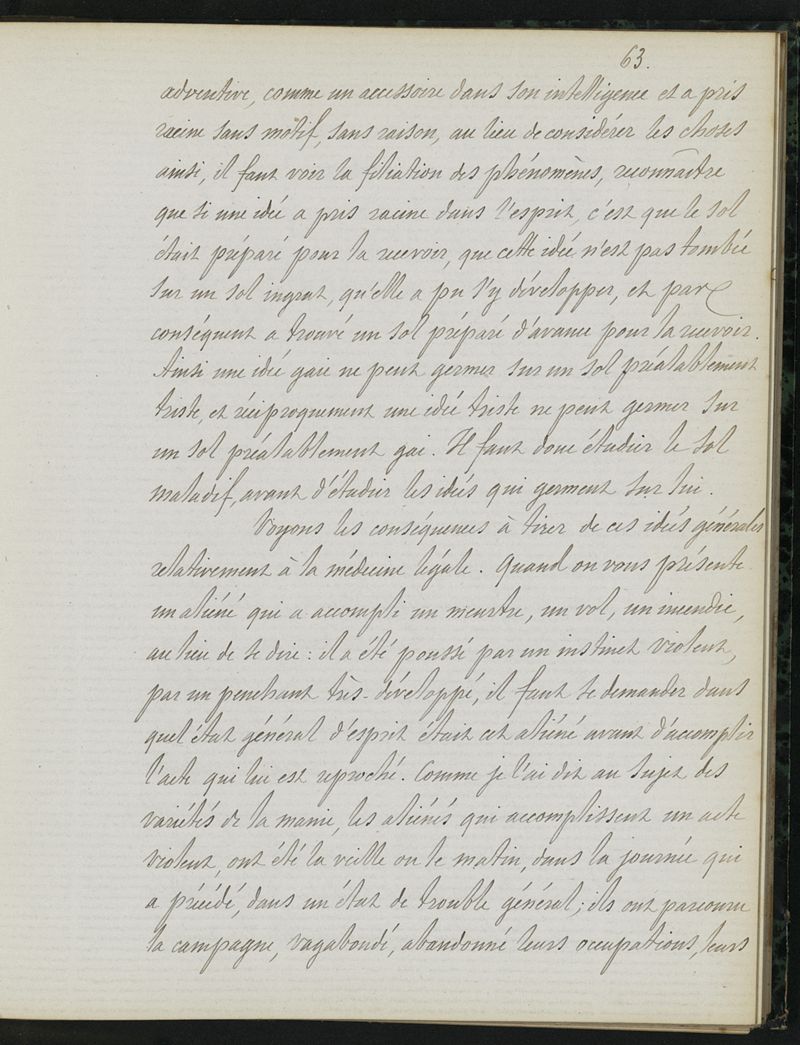 63.
adventive, comme un accessoire dans son intelligence et a pris
racine sans motif, sans raison, au lieu de considérer les choses
ainsi, il faut voir la filiation des phénomènes, reconnaître
que si une idée a pris racine dans l'esprit, c'est que le sol
était préparé pour la recevoir, que cette idée n'est pas tombée
sur un sol ingrat, qu'elle a pu s'y développer, et par
conséquent a trouvé un sol préparé d'avance pour la recevoir.
Ainsi une idée gaie ne peut germer sur un sol préalablement
triste, et réciproquement une idée triste ne peut germer sur
un sol préalablement gai. Il faut donc étudier le sol
maladif, avant d'étudier les idées qui germent sur lui.
Voyons les conséquences à tirer de ces idées générales
relativement à la médecine légale. Quand on vous présente
un aliéné qui a accompli un meurtre, un vol, un incendie,
au lieu de se dire : il a été poussé par un instinct violent,
par un penchant très-développé, il faut se demander dans
quel état général d'esprit était cet aliéné avant d'accomplir
l'acte qui lui est reproché. Comme je l'ai dit au sujet des
variétés de la manie, les aliénés qui accomplissent un acte
violent, ont été la veille ou le matin, dans la journée qui
a précédé, dans un état de trouble général ; ils ont parcouru
la campagne, vagabondé, abandonné leurs occupations, leurs